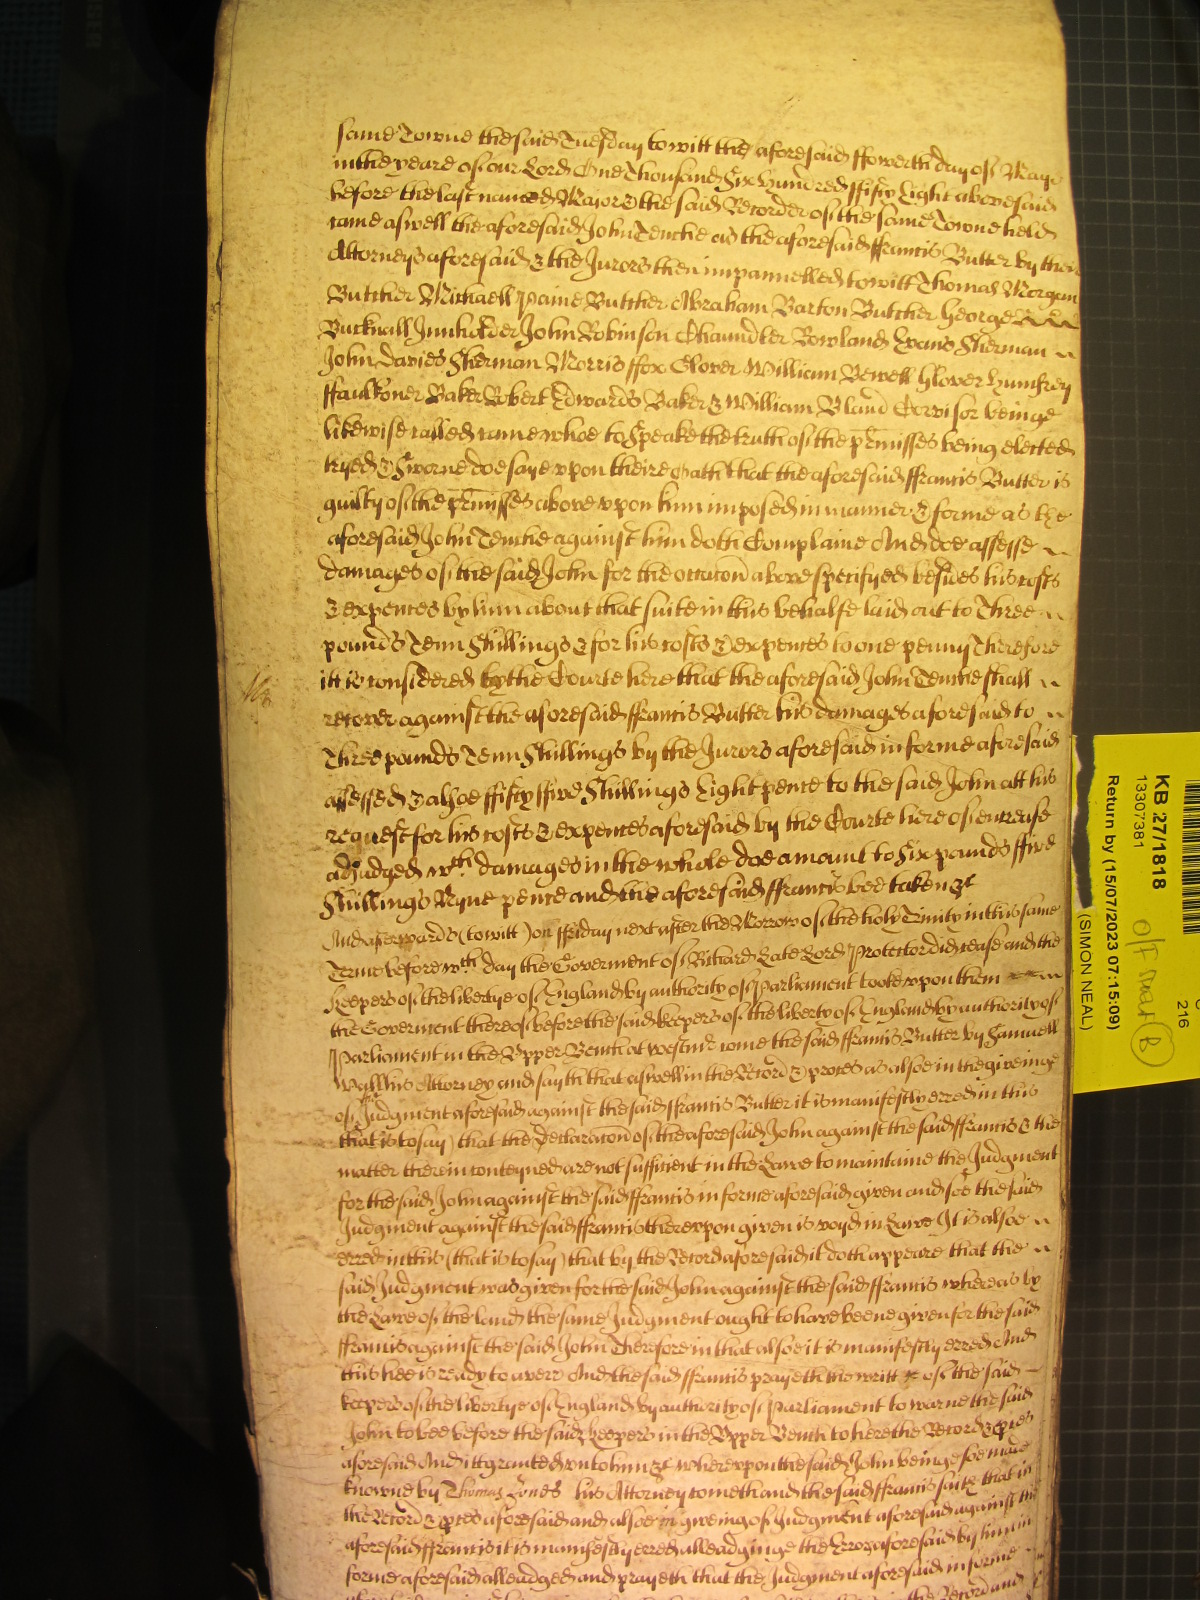 same Towne the said Tuesday to witt the aforesaid ffowerth day of Maye
in the yeare of our Lord One Thousand Six hundred ffifty Eight abovesaid
before the last named Maior & the said Recorder of the same Towne held
came aswell the aforesaid John Tenche as the aforesaid ffrancis Butter by their
Attorneys aforesaid & the Jurors then impannelled to witt Thomas Morgan
Butcher Michaell Paine Butcher Abraham Barton Butcher George
Bucknall Innholder John Robinson Chaundler Rowland Evans Sherman
John Davies Sherman Morris ffox Glover William Bewell Glover Humfrey
ffaulkoner Baker Robert Edwards Baker & William Bland Corvisor beinge
likewise called came whoe to speake the truth of the p'misses being elected
tryed & Sworne doe saye vpon theire oath that the aforesaid ffrancis Butter is
guilty of the p'misses above vpon him imposed in manner & forme as the
aforesaid John Tenche against him doth Complaine And doe assesse
damages of the said John for the occac'on above specifyed besides his costs
& expences by him about that suite in this behalfe laid out to Three
pounds Tenn Shillings & for his costs & expences to one penny Therefore
itt is considered by the Courte here that the aforesaid John Tenche shall
recover against the aforesaid ffrancis Butter his damages aforesaid to
Three pounds Tenn Shillings by the Jurors aforesaid in forme aforesaid
assessed & alsoe ffifty ffive Shillings Eight pence to the said John att his
request for his costs & expences aforesaid by the Courte here of encrease
adjudged wch damages in the whole doe amount to Six pounds ffive
Shillings Nyne pence and the aforesaid ffrancis bee taken &c
And afterwards (to witt) on ffriday next after the Morrow of the holy Trinity in this same
Terme before wch day the Goverment of Richard Late Lord Protector did cease and the
Keepers of the libertye of England by authority of Parliament tooke vpon them
the Goverment thereof before the said keepers of the liberty of England by authority of
Parliament in the Vpper Bench at Westmr come the said ffrancis Butter by Samuell
Wall his Attorney and sayth that aswell in the Record & proces as alsoe in the giveinge
of the Judgment aforesaid against the said ffrancis Butter it is manifestly erred in this
that is to say) that the Declarac'on of the aforesaid John against the said ffrancis & the
matter therein conteyned are not sufficient in the Lawe to maintaine the Judgment
for the said John against the said ffrancis in forme aforesaid given and soe the said
Judgment against the said ffrancis therevpon given is voyd in Lawe It is alsoe
erred in this (that is to say) that by the Record aforesaid it doth appeare that the
said Judgment was given for the said John against the said ffrancis whereas by
the Lawe of the land the same Judgment ought to have beene given for the said
ffrancis against the said John Therefore in that alsoe it is manifestly erred And
this hee is ready to averr And the said ffrancis prayeth the writt of the said
keepers of the libertye of England by authority of Parliament to warne the said
John to bee before the said keepers in the Vpper Bench to here the Record & p'ces
aforesaid And itt granted vnto him &c wherevpon the said John beinge soe made
knowne by Thomas Jones his Attorney cometh and the said ffrancis saith that in
the Record & p'ces aforesaid and alsoe in giveing of Judgment aforesaid against the
aforesaid ffrancis it is manifestly erred alleadginge the Error aforesaid by him in
forme aforesaid alleadged and prayeth that the Judgment aforesaid in forme
the Record and
KB 27/1818
13307381
Return by (15/07/2023 07:15:09)
(SIMON NEAL)
216